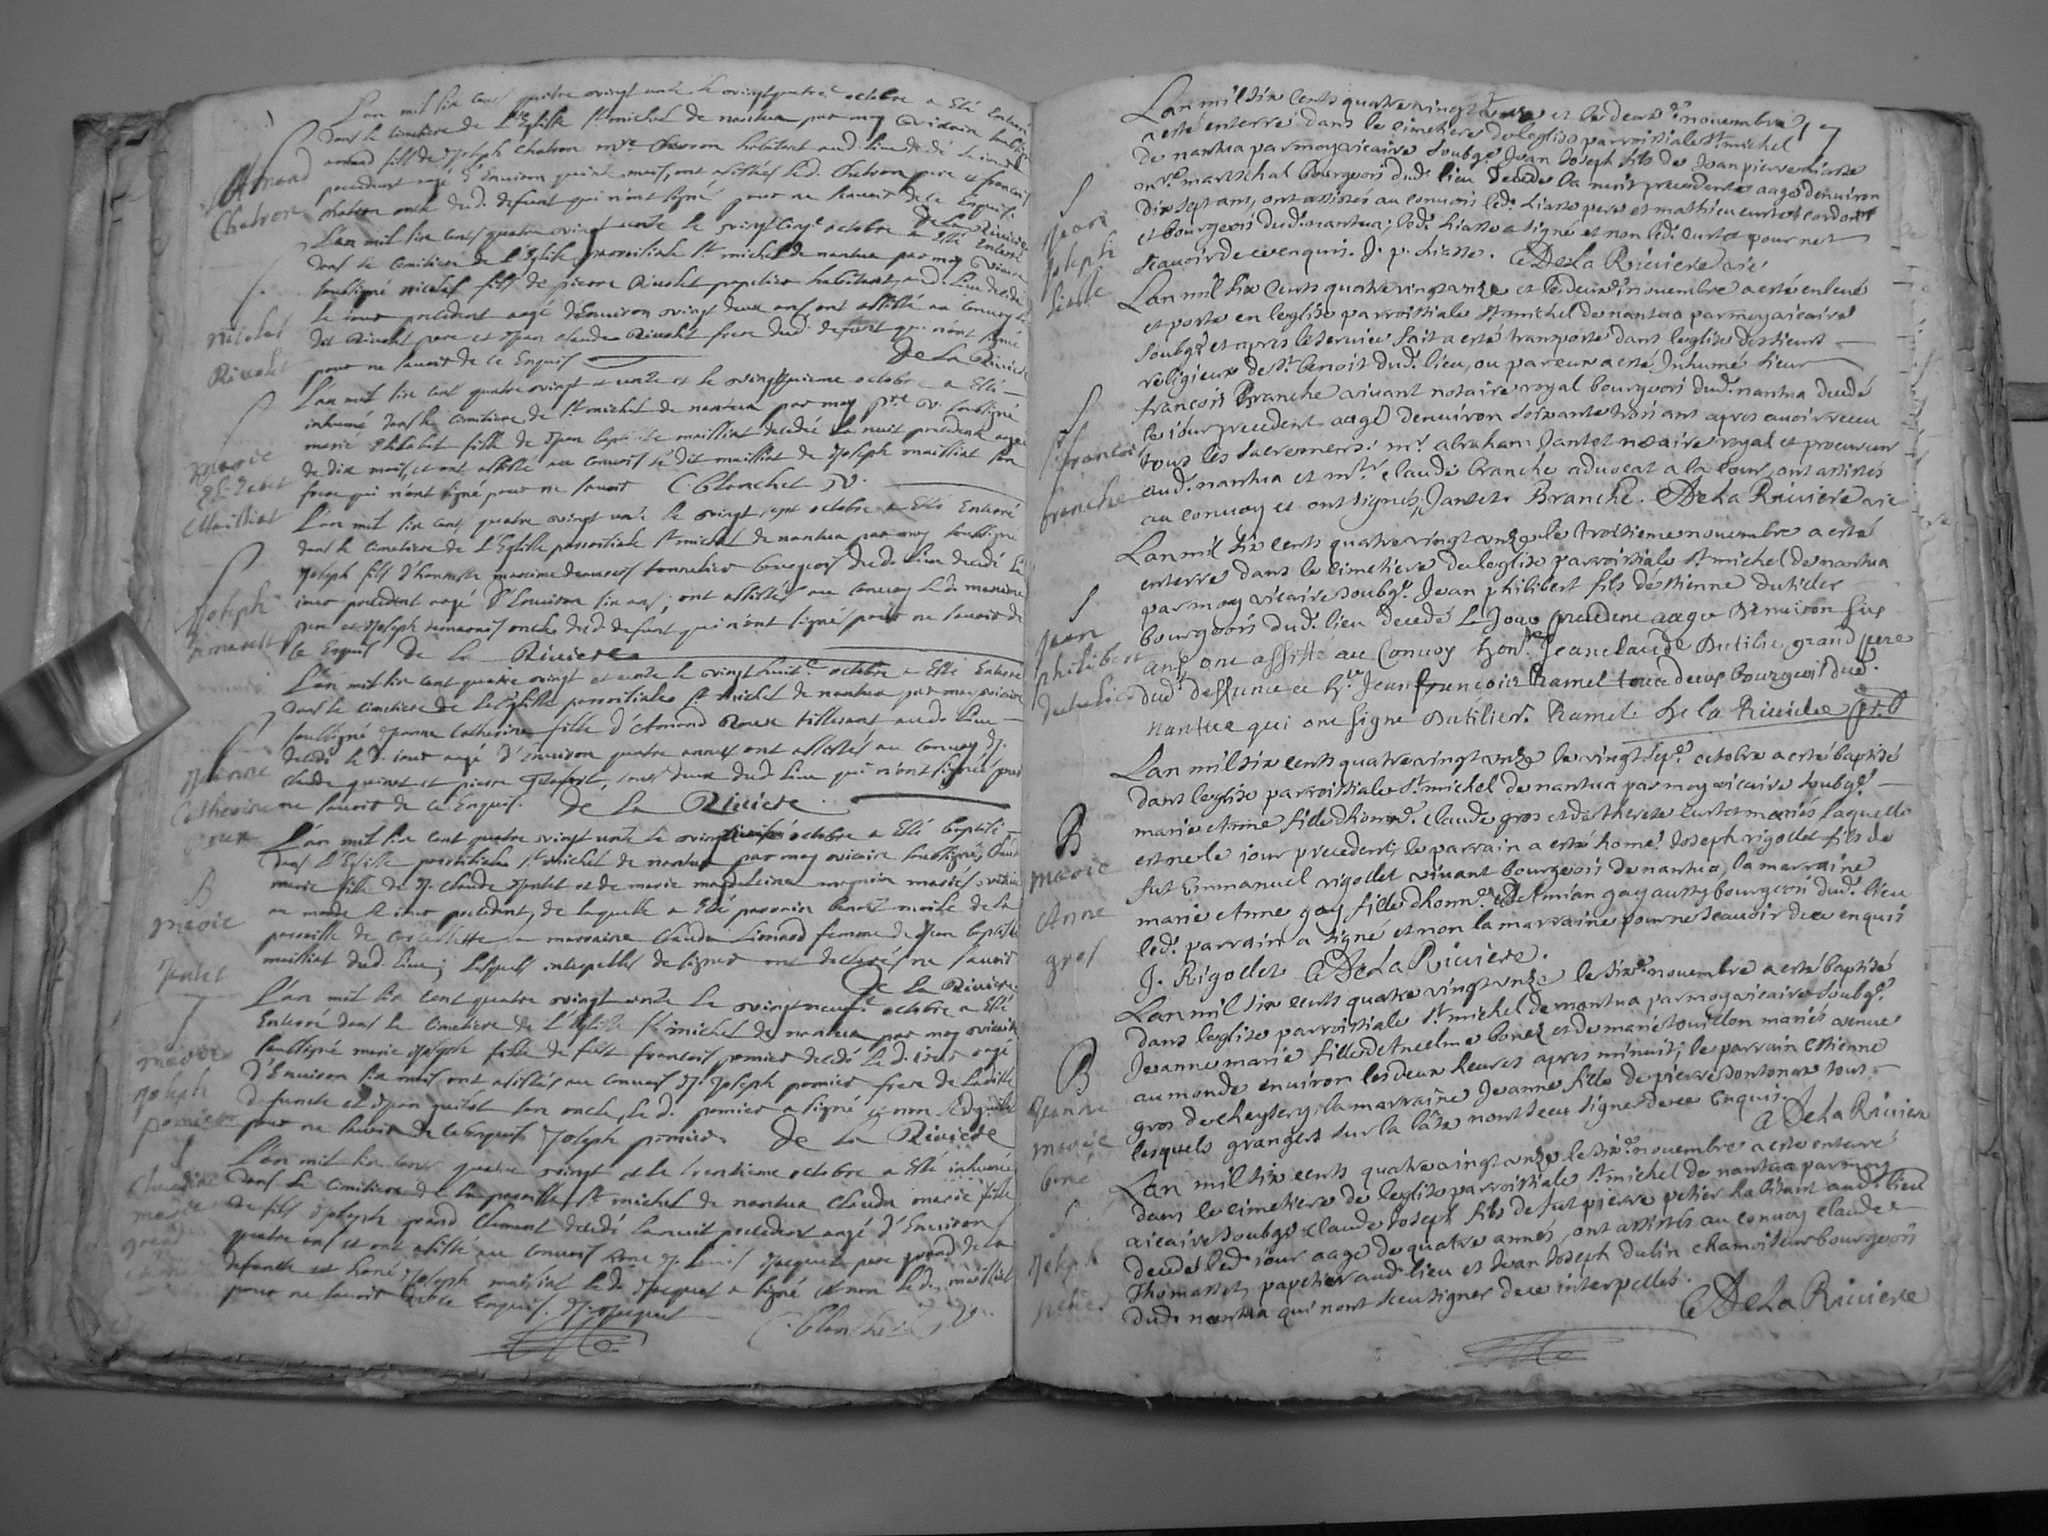 L'an mil six cent quatre vingt unze le vingtquatre octobre a esté enterré
dans le cimetiere de l'Eglise st michel de nantua par moy vicaire
armand fils de joseph chatron habitant aud. lieu decedé le jour
precedent aagé d'environ quinze mois, ont assistés led. Chatron pere et francois
chatron oncle dud. defunt qui n'ont signé pour ne scavoir de ce Enquis.
De La Riviere
Armand
Chatron
L'an mil six cent quatre vingt unze le vingt cinq. octobre a esté Enterré
dans le cimitiere de l'Eglise parroissiale st michel de nantua par moy vicaire
soubsigné nicolas fils de pierre Rivolet papetier habitant aud. lieu decedé
le jour precedent aagé d'Environ vingt deux ans, ont assisté au convoy le
dit Rivolet pere et jean claude Rivolet frere dud. defunt qui n'ont signé
pour ne scavoir de ce Enquis
De La Riviere
nicolas
Rivolet
L'an mil six cent quatre vingt et unze et le octobre a Esté
inhumé dans le cimitiere de st michel de nantua par moy soubsigné
marie Elizabet fille de jean baptiste mailliat decedée la nuit precedente aagée
de dix mois, et ont assisté au convois le dit mailliat et joseph mailliat son
frere qui n'ont signé pour ne scavoir C. Blanchet
marie
Mailliat
L'an mil six cent quatre vingt unze le vingt sept octobre a Esté Enterré
dans le cimetiere de l'Eglise parroissiale st michel de nantua par moy soubsigné
joseph fils d'honneste maxime bourgeois dud. lieu decedé le
jour precedent aagé d'Environ six ans; ont assistés au convoy led. maxime
pere et joseph oncle dud. defunt qui n'ont signés pour ne scavoir de
ce Enquis De La Riviere
joseph
L'an mil six cent quatre vingt et unze le vingt huit octobre a Esté Enterré
dans le cimetiere de l'Eglise parroissiale st michel de nantua par moy vicaire
soubsigné jeanne catherine fille d'Armand Roux tisserant aud. lieu
decedé le d. jour aagé d'environ quatre années ont assistés au convoy
claude guinet et pierre tous deux dud. lieu qui n'ont signés pour
ne scavoir de ce Enquis. De La Riviere
jeanne
Catherine
roux
L'an mil six cent quatre vingt unze le octobre a Esté baptisé
dans l'Eglise parroissiale st michel de nantua par moy vicaire soubsigné
marie fille de claude jantet et de marie magdeleine mariés
au monde le jour precedent, de laquelle a Esté parrain
parroisse de marraine Claudine femme de jean baptiste
mailliat dud. lieu; lesquels interpellés de signer ont declarés ne scavoir
De La Riviere
B
marie
jantet
L'an mil six cent quatre vingt unze le vingtneuf octobre a Esté
Enterré dans le cimetiere de l'Eglise st michel de nantua par moy vicaire
soubsigné marie joseph fille de fut francois pomier decedé le d. jour aagé
d'Environ six mois, ont assistés au convois joseph pomier frere de laditte
defuncte et jean son oncle, le d. pomier a signé et non led.
pour ne scavoir de ce Enquis joseph pomier De La Riviere
marie
joseph
pomier
L'an mil six cent quatre vingt et le trentieme octobre a Esté inhumée
dans le cimitiere de la parroisse st michel de nantua Claudine marie fille
de joseph grand Clement decedé la nuit precedent aagé d'Environ
quatre ans et ont assisté au convois jacquet pere grand de la
defuncte et honé joseph mailliat led. jacquet a signé et non led. mailliat
pour ne scavoir de ce Enquis. jacquet
C. Blanchet
Claudine
marie
17
Lan mil six cents quatre vingt unze et le deuxe nouembre
a esté enterré dans le cimetiere de leglise parroissiale st michel
de nantua par moy vicaire soubge Jean Joseph fils de Jean pierre Liasse
me mareschal bourgeois dud. lieu decedé la nuit precedente aagé denuiron
dix sept ans, ont assistés au conuois led. Liasse pere et mathieu curtet cordonr
et bourgeois dud. nantua; led. Liasse a signé et non led. curtet pour ne
scauoir de ce enquis. J. p. Liasse. DeLa Riuiere vic
Jean
Joseph
Liasse
Lan mil six cents quatre vingt unze et le deuxe nouembre a esté enleué
et porté en leglise parroissiale st michel de nantua par moy vicaire
soubgé et apres le seruice fait a esté transporté dans leglise des sieurs
religieux de st benoit dud. lieu, ou par eux a esté Inhumé sieur
francois Branche viuant notaire royal bourgeois dud. nantua decedé
le jour precedent aagé denuiron soixante trois ans apres auoir receu
tous les sacrements. mr abraham Jantet notaire royal et procureur
aud. nantua et mr claude branche aduocat a la cour, ont assistés
au conuoy et ont signés, Jantet. Branche. DeLa Riuiere vic
francois
branche
Lan mil six cents quatre vingt unze le troisieme nouembre a esté
enterré dans le cimetiere de leglise parroissiale st michel de nantua
par moy vicaire soubgé. Jean philibert fils destienne dutilier
bourgeois dud. lieu decedé Le Jour precedent aagé d'Enuiron six
ans ont assisté au Conuoy honr. Jean claude Dutilier grand pere
dud. deffunct et hr. Jean francois Ramel tous deux bourgeois dud.
nantua qui ont signé Dutilier. Ramel. De la Riuiere
Jean
philibert
dutilier
Lan mil six cents quatre vingt unze le vingt sepe. octobre a esté baptisé
dans leglise parroissiale st michel de nantua par moy vicaire soubgé.
marie Anne fille dhonr. claude gros et de therese curtet mariés laquelle
est née le jour precedent; le parrain a esté honé. Joseph rigollet fils de
fut Emmanuel rigollet viuant bourgeois de nantua, la marraine
marie Anne gay fille dhonr. Damian gay aussy bourgeois dud. lieu
led. parrain a signé et non la marraine pour ne scauoir de ce enquis
J. Rigollet DeLa Riuiere.
B
marie
Anne
gros
Lan mil six cents quatre vingt unze le sixe. nouembre a esté baptisé
dans leglise parroissiale st michel de nantua par moy vicaire soubgé.
Jeanne marie fille dAnselme bonez et de marie touillon mariés venue
au monde enuiron les deux heures apres minuit; le parrain Estienne
gros de cheysery, la marraine Jeanne fille de pierre tous
lesquels grangers sur la n'ont sceu signer de ce Enquis.
DeLa Riuiere
B
Jeanne
marie
Lan mil six cents quatre vingt unze le sixe. nouembre a esté enterré
dans le cimetiere de leglise parroissiale st michel de nantua par moy
vicaire soubgé claude Joseph fils de fut pierre petier habitant aud. lieu
decedé led. jour aagé de quatre années, ont assistés au conuoy claude
Thomasset, papetier aud. lieu et Jean Joseph dulin chamoiseur bourgeois
dud. nantua qui n'ont sceu signer de ce interpellés.
DeLa Riuiere
Joseph
petier